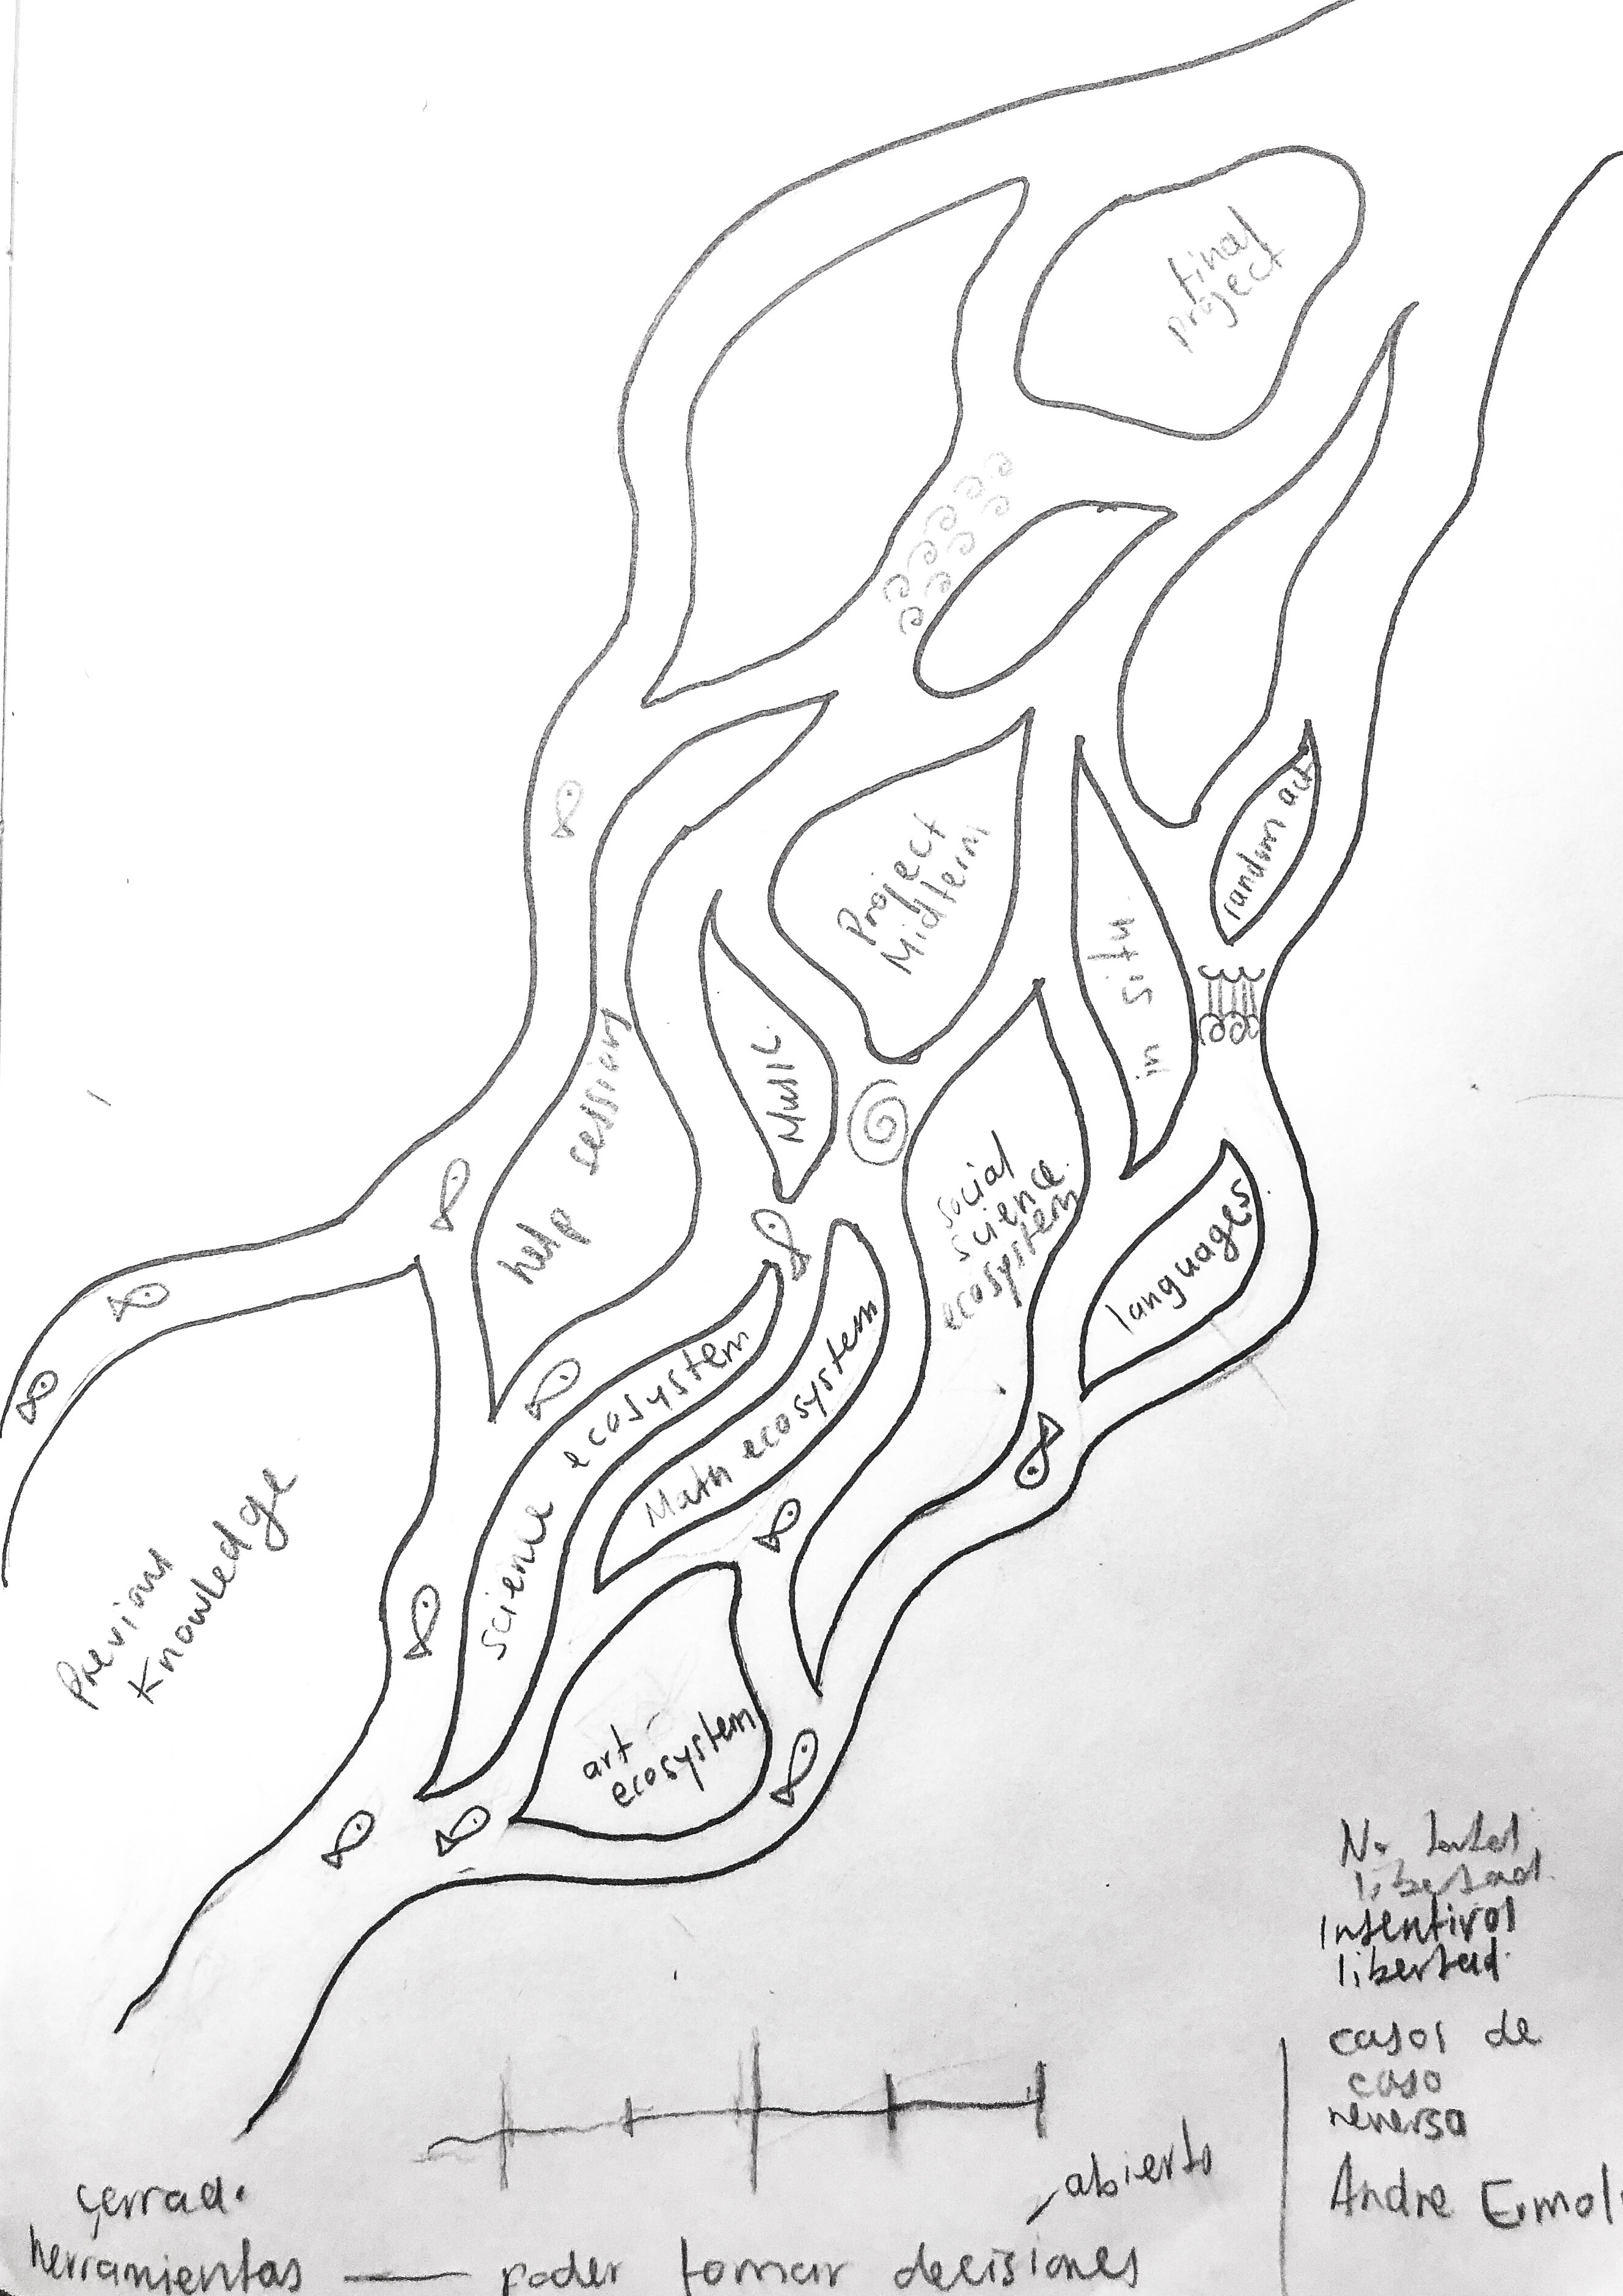 final
project
random act
Project
Midterm
in situ
Music
help sessions
social
science
ecosystem
languages
science ecosystem
Math ecosystem
Previous
Knowledge
art
ecosystem
No
libertad
Insentivos
libertad
casos de
caso
reversa
Andre
cerrado
abierto
herramientas — poder tomar decisiones